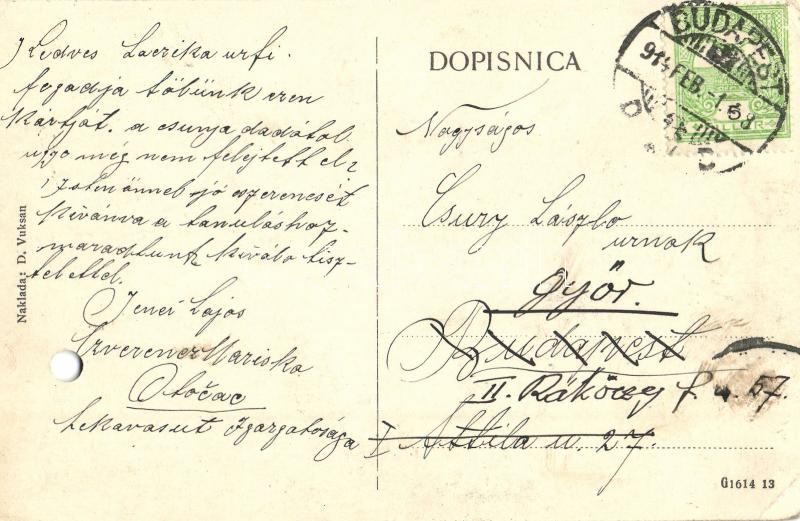 Kedves Laczika urfi.
fogadja tölünk ezen
kártyát. a csunya dadától
ugye még nem felejtett el?
Isten önnek jó szerencsét
kívánva a tanuláshoz
maradtunk kiváló tisz-
telettel.
Jenei Lajos
Mariska
Otočac
Igazgatósága
Naklada: D. Vuksan
DOPISNICA
BUDAPEST
914 FEB. -1.
Nagyságos
Csury László
urnak
Győr.
Budapest
II. Rákóczy f. u. 57.
I Attila u. 27.
G1614 13